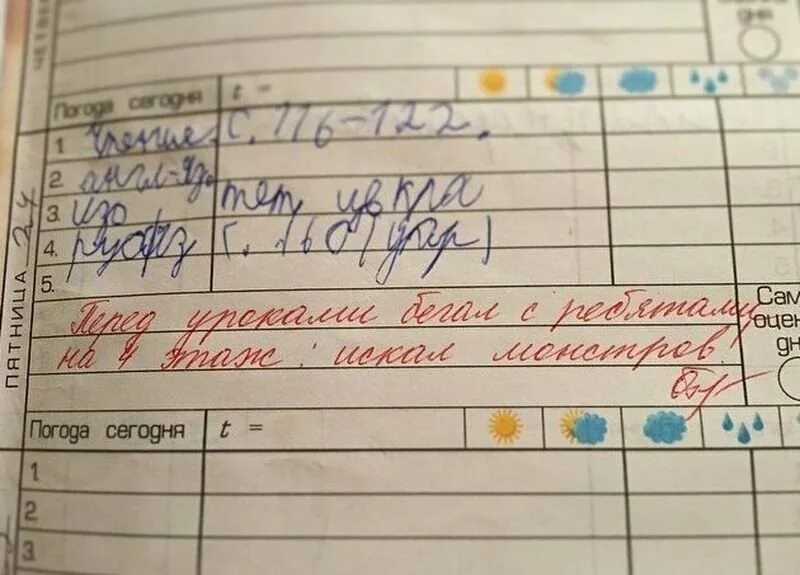 ЧЕТВЕ
дня
Погода сегодня t =
1 Чтение. с. 116-122.
2 англ-яз.
3. изо тет, цв кра
4. г. 160 (упр)
5.
ПЯТНИЦА 24
Перед уроками бегал с ребятами
на 4 этаж: искал монстров!
Сам
оцен
дн
Погода сегодня t =
1
2
3.